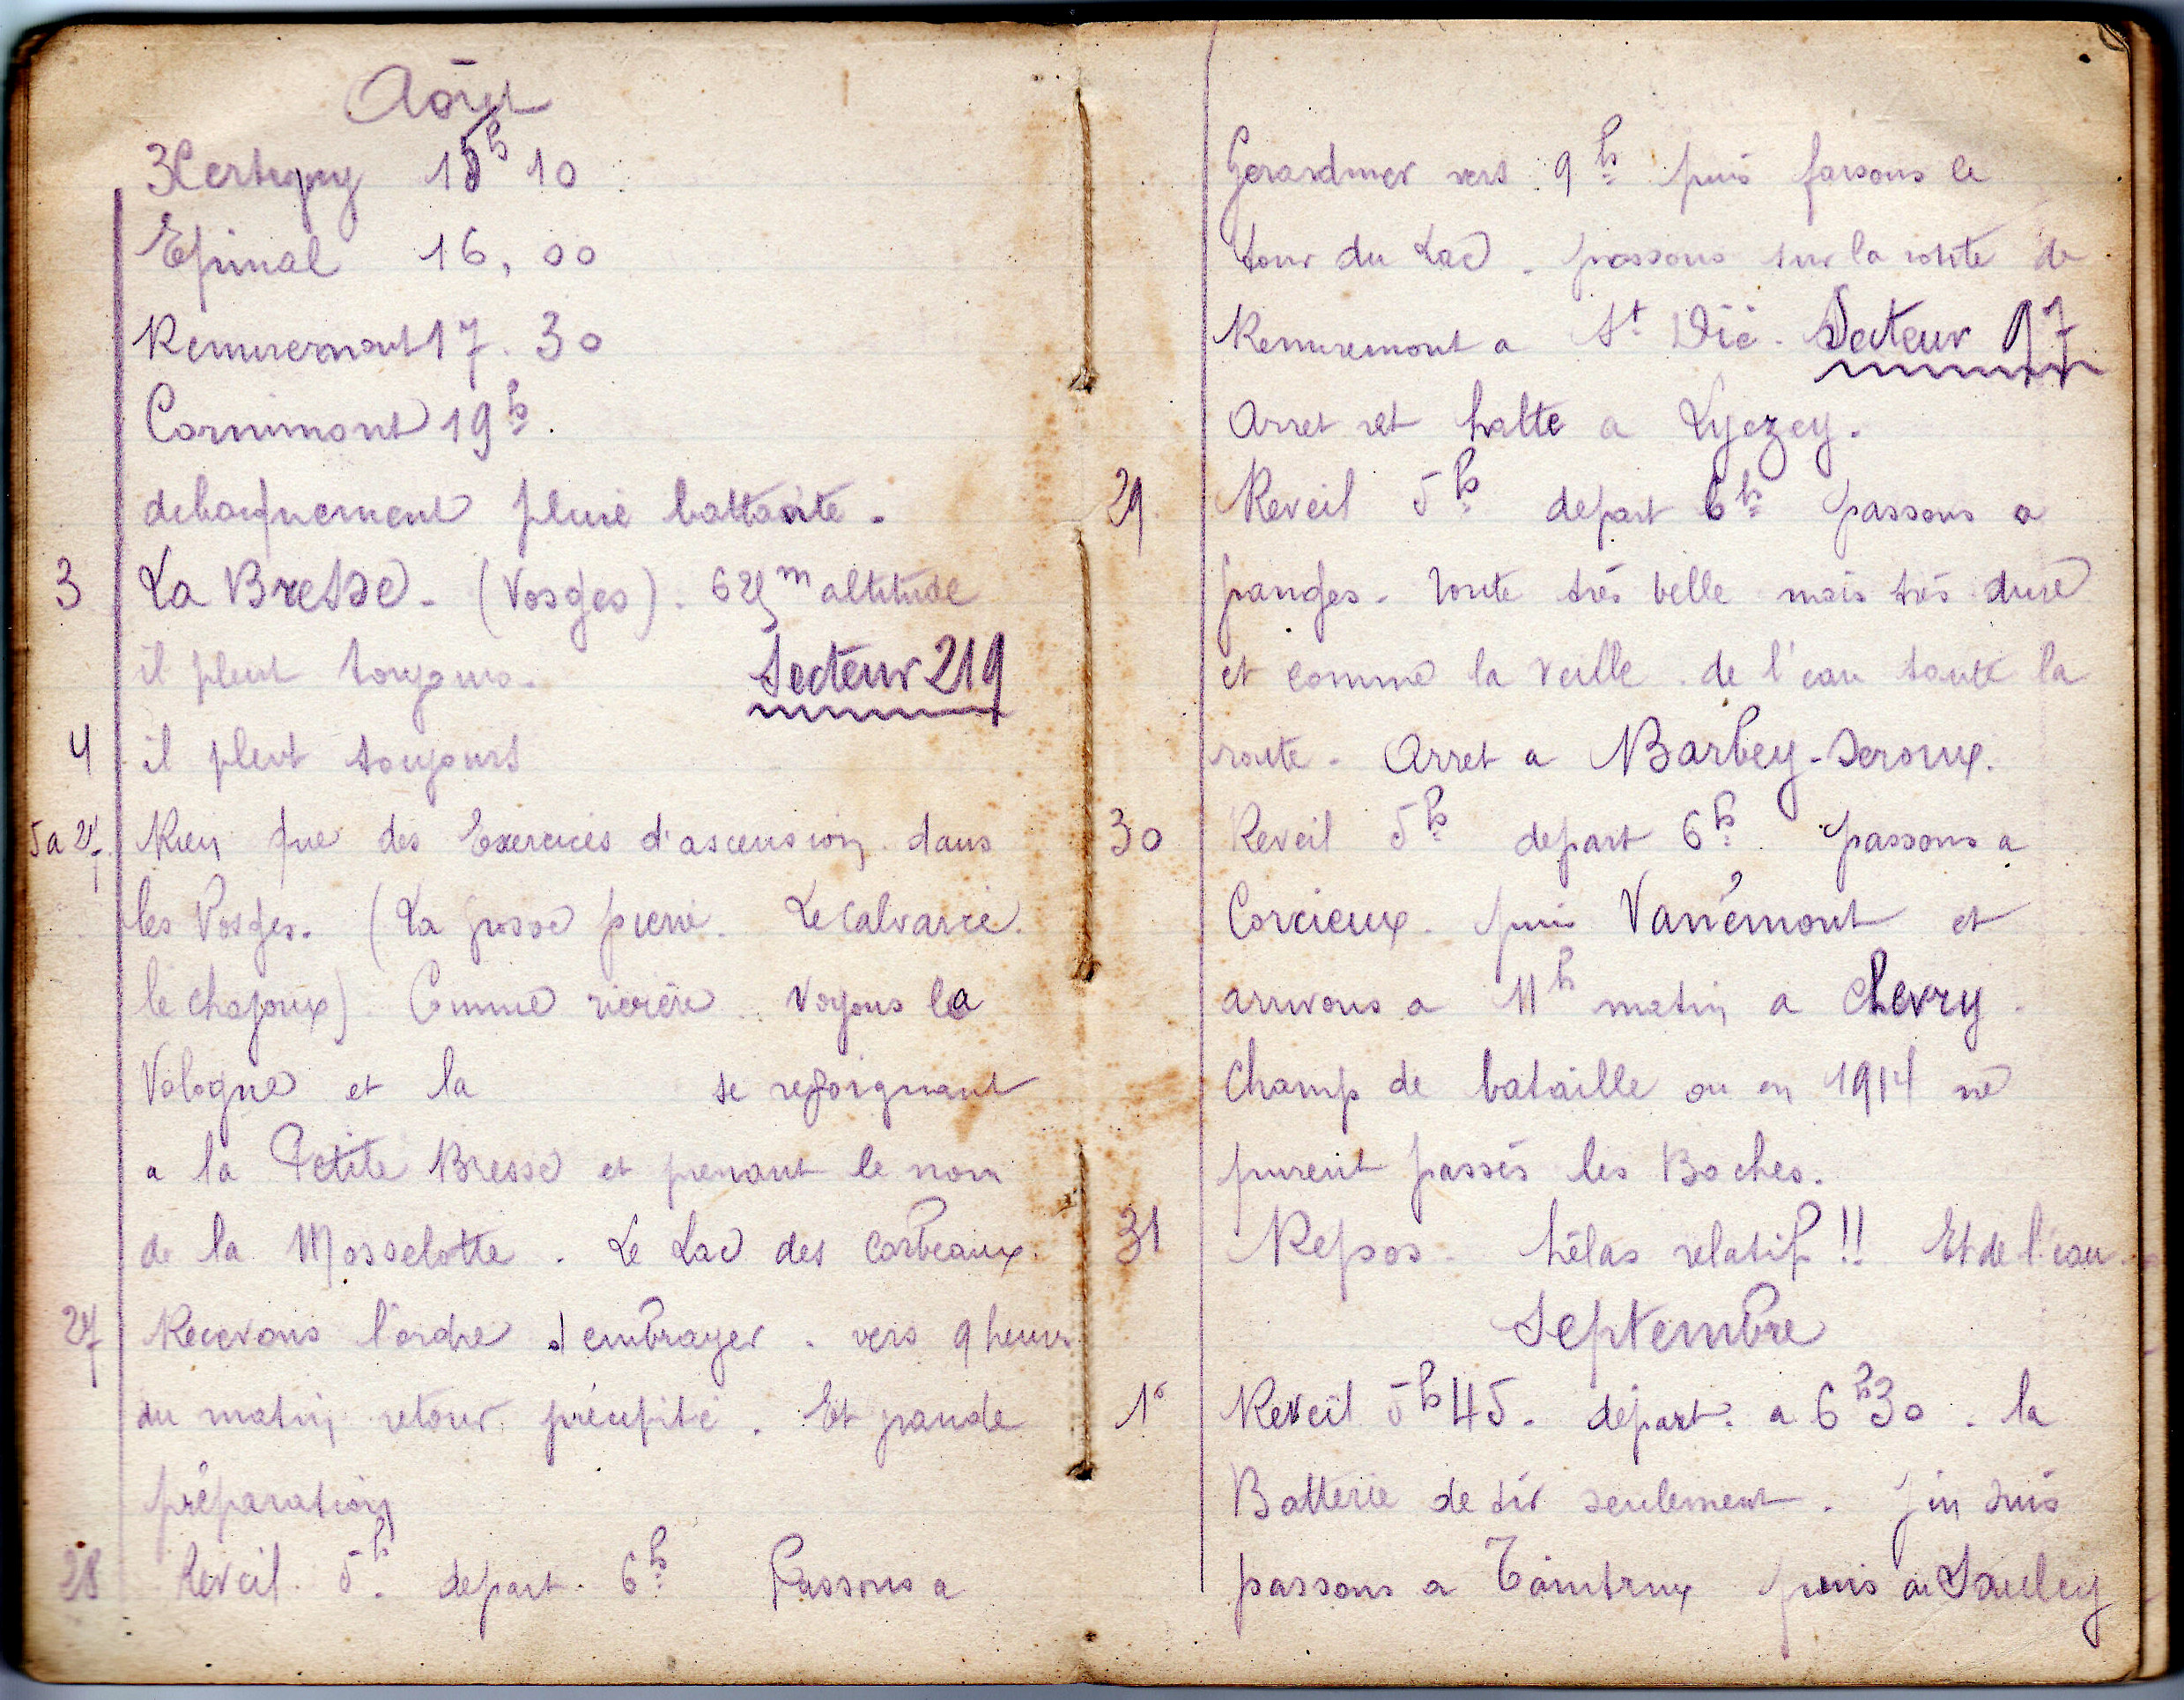 Août
Xertigny 15h 10
Epinal 16, 00
Remiremont 17. 30
Cornimont 19h.
debarquement pluie battante.
3 La Bresse. (Vosges). 625m altitude
il pleut toujours. Secteur 219
4 il pleut toujours
5 a 27 Rien que des Exercices d'ascension dans
les Vosges. (La grosse pierre. Le Calvaire.
le chajoux) Comme rivière. Voyons la
Vologne et la se rejoignant
a la Petite Bresse et prenant le nom
de la Mosselotte. Le Lac des Corbeaux.
27 Recevons l'ordre d'embrayer. vers 9 heures
du matin retour précipité. Et grande
préparation
28 Reveil 5h. depart 6h. Passons a
Gerardmer vers 9h puis faisons le
tour du Lac. passons sur la route de
Remiremont a St Dié. Secteur 97
Arret et halte a Lyezey.
29 Reveil 5h. depart 6h passons a
granges. route très belle mais très dure
et comme la veille de l'eau toute la
route. Arret a Barbey-Seroux.
30 Reveil 5h. depart 6h. passons a
Corcieux. puis Vanémont et
arrivons a 11h matin a Chevry.
Champ de bataille ou en 1914 ne
purent passés les Boches.
31 Repos. hélas relatif !! Et de l'eau.
Septembre
1er Reveil 5h45. départ. a 6h30. la
Batterie de tir seulement. j'en suis
passons a Taintrux puis au Saulcy